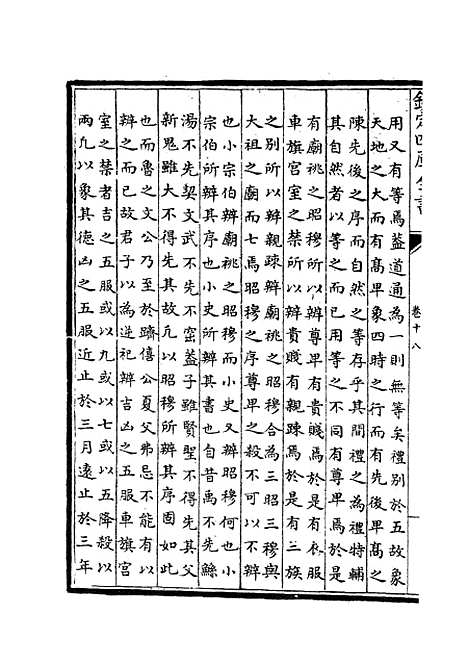 欽定四庫全書
卷十八
用又有等焉蓋道通為一則無等矣禮別於五故象
天地之大而有髙卑象四時之行而有先後卑髙之
陳先後之序而自然之等存乎其間禮之於禮特輔
其自然者以等之而已用等之不同有尊卑焉於是
有廟祧之昭穆所以辨尊卑有貴賤焉於是有衣服
車旗宫室之禁所以辨貴賤有親疎焉於是有三族
之别所以辨親疎辨廟祧之昭穆合為三昭三穆與
大祖之廟而七焉昭穆之序尊卑之殺不可以不辨
也小宗伯辨廟祧之昭穆而小史又辨昭穆何也小
宗伯所辨其序也小史所辨其書也自昔禹不先鯀
湯不先契文武不先不窋蓋子雖賢聖不得先其父
新鬼雖大不得先其故凡以昭穆所辨其序固如此
也而魯之文公乃至於躋僖公夏父弗忌不能有以
辨之而已故君子以為逆祀辨吉凶之五服車旗宫
室之禁者吉之五服或以九或以七或以五降殺以
兩凡以象其德凶之五服近止於三月遠止於三年